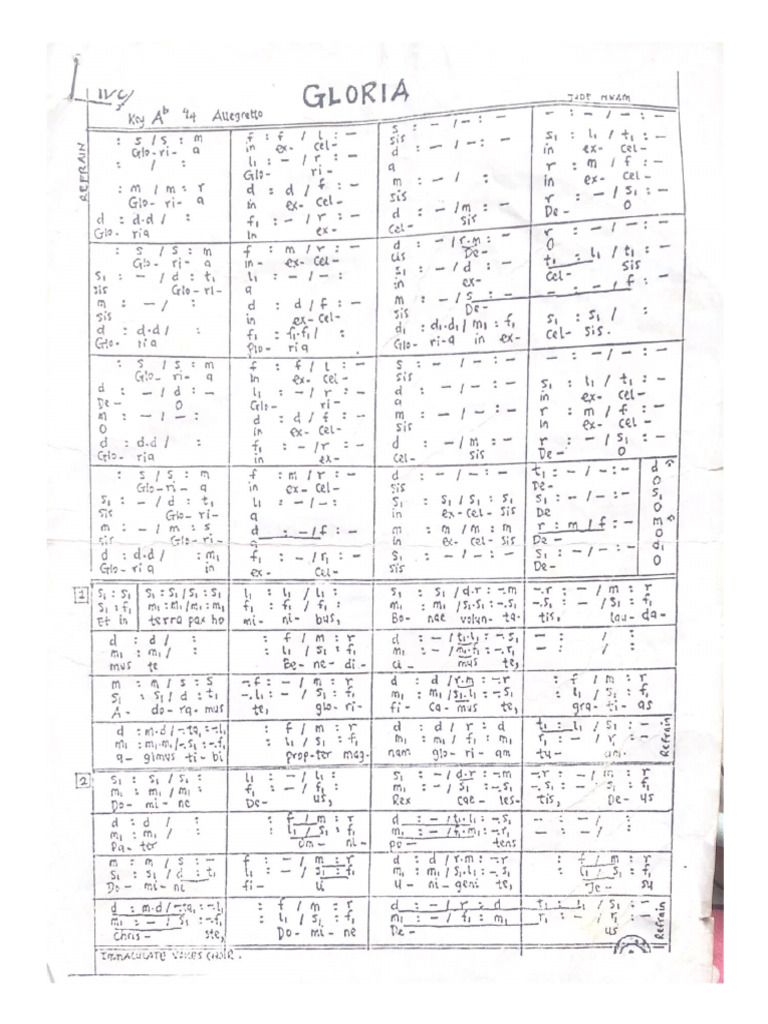 IVC
GLORIA
JUDE NNAM
Key Ab 4/4 Allegretto
REFRAIN
: s / s : m | f : f / l : – | s : – / – : – | – : – / – : –
Glo- ri- a | in ex- cel- | sis | s₁ : l₁ / t₁ : –
: / : | l₁ : – / r : – | d : – / – : – | in ex- cel-
Glo- ri- | a | r : m / f : –
: m / m : r | d : d / f : – | m : – / : | in ex- cel-
Glo- ri- a | in ex- cel- | sis | r : – / s₁ : –
d : d.d / : | f₁ : – / r : – | d : – / m : – | De- O
Glo- ria | in ex- | cel- sis
: s / s : m | f : m / r : – | d : – / r.m : – | r : – / – : –
Glo- ri- a | in ex- cel- | us De- | O
s₁ : – / d : t₁ | l₁ : – / – : – | s₁ : – / d : – | t₁ : l₁ / t₁ : –
sis Glo- ri- | a | ex- | cel- sis
m : – / : | d : d / f : – | m : – / s : – | – : – / f : –
sis | in ex- cel- | sis De-
d : d.d / : | f₁ : f₁.f₁ / : | d₁ : d₁.d₁ / m₁ : f₁ | s₁ : s₁ / :
Glo- ria | Glo- ria | Glo- ri-a in ex- | cel- sis.
: s / s : m | f : f / l : – | s : – / – : – | – : – / – : –
Glo- ri- a | in ex- cel- | sis
d : – / d : – | l₁ : – / r : – | d : – / – : – | s₁ : l₁ / t₁ : –
De- O | Glo- ri- | a | in ex- cel-
m : – / – : – | d : d / f : – | m : – / – : – | r : m / f : –
O | in ex- cel- | sis | in ex- cel-
d : d.d / : | f₁ : – / r : – | d : – / m : – | r : – / s₁ : –
Glo- ria | in ex- | cel- sis | De- O
: s / s : m | f : m / r : – | d : – / – : – | t₁ : – / – : – | d
Glo- ri- a | in ex- cel- | sis | De- | O
s₁ : – / d : t₁ | l₁ : – / – : – | s₁ : s₁ / s₁ : s₁ | s₁ : – / – : – | s₁
sis Glo- ri- | a | in ex- cel- sis | De- | O
m : – / m : s | d : – / f : – | m : m / m : m | r : m / f : – | m
sis Glo- ri- | a | in ex- cel sis | De- | O
d : d.d / : m₁ | f₁ : – / r₁ : – | s₁ : – / – : – | s₁ : – / – : – | d₁
Glo- ria in | ex- cel- | sis | De- | O
1 | s₁ : s₁ | s₁ : s₁ / s₁ : s₁ | l₁ : l₁ / l₁ : | s₁ : s₁ / d.r : –.m | –.r : – / m : r
s₁ : f₁ | m₁ : m₁ / m₁ : m₁ | f₁ : f₁ / f₁ : | m₁ : m₁ / s₁.s₁ : –.s₁ | –.s₁ : – / s₁ : f₁
Et in | terra pax ho | mi- ni- bus, | Bo- nae volun- ta- | tis, lau- da-
d : d / : | : f / m : r | d : – / t₁.l₁ : –.s₁ | – : / :
m₁ : m₁ / : | : l₁ / s₁ : f₁ | m₁ : – / m₁.f₁ : –.r₁ | – : / :
mus te | Be- ne- di- | ci- mus te,
m : m / s : s | –.f : – / m : r | d : d / r.m : –.r | : f / m : r
s₁ : s₁ / d : t₁ | –.l₁ : – / s₁ : f₁ | m₁ : m₁ / s₁.l₁ : –.s₁ | : l₁ / s₁ : f₁
A- do- ra- mus | te, glo- ri- | fi- ca- mus te, | gra- ti- as
d : m.d / –.ta₁ : –.l₁ | : f / m : r | d : d / r : d | t₁ : l₁ / s₁ : –
m₁ : m₁.m₁ / –.s₁ : –.f₁ | : l₁ / s₁ : f₁ | m₁ : m₁ / f₁ : m₁ | r₁ : – / r₁ : –
a- gimus ti- bi | prop-ter mag- | nam glo- ri- am | tu- am.
Refrain
2 | s₁ : s₁ / s₁ : | l₁ : – / l₁ : – | s₁ : – / d.r : –.m | –.r : – / m : r
m₁ : m₁ / m₁ : | f₁ : – / f₁ : – | m₁ : – / s₁ : –.s₁ | –.s₁ : – / s₁ : f₁
Do- mi- ne | De- us, | Rex cae- les- | tis, De- us
d : d / : | : f / m : r | d : – / t₁.l₁ : –.s₁ | – : – / :
m₁ : m₁ / : | : l₁ / s₁ : f₁ | m₁ : – / f₁.m₁ : –.r₁ | – : – / :
Pa- ter | om- ni- | po- tens
m : m / s : – | f : – / m : r | d : d / r.m : –.r | : f / m : r
s₁ : s₁ / d : t₁ | l₁ : – / s₁ : f₁ | m₁ : m₁ / s₁.l₁ : –.s₁ | : l₁ / s₁ : f₁
Do- mi- ni | fi- li | u- ni- geni te, | Je- su
d : m.d / –.ta₁ : –.l₁ | : f / m : r | d : – / r : d | t₁ : l₁ / s₁ : –
m₁ : – / s₁ : –.f₁ | : l₁ / s₁ : f₁ | m₁ : – / f₁ : m₁ | r₁ : – / r₁ : –
Chris- ste, | Do- mi- ne | De- | us
Refrain
IMMACULATE VOICES CHOIR.